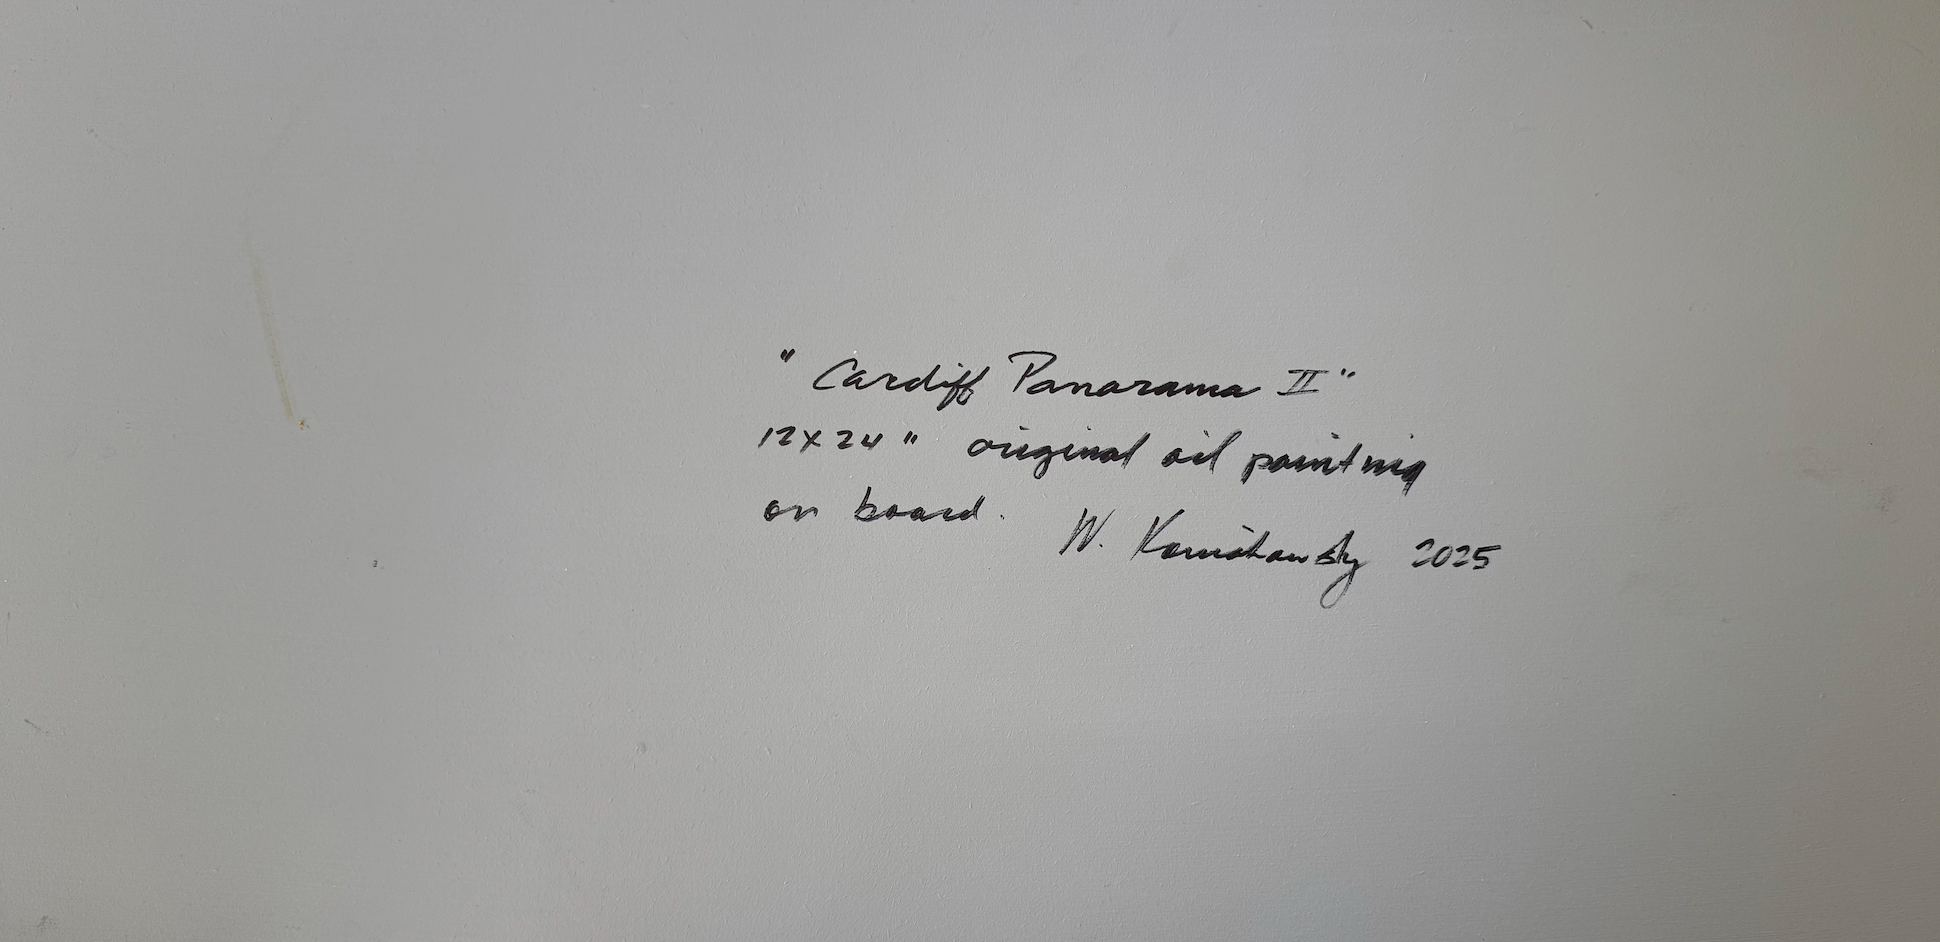 "Cardiff Panorama II"
12x24" original oil painting
on board.
W. 2025